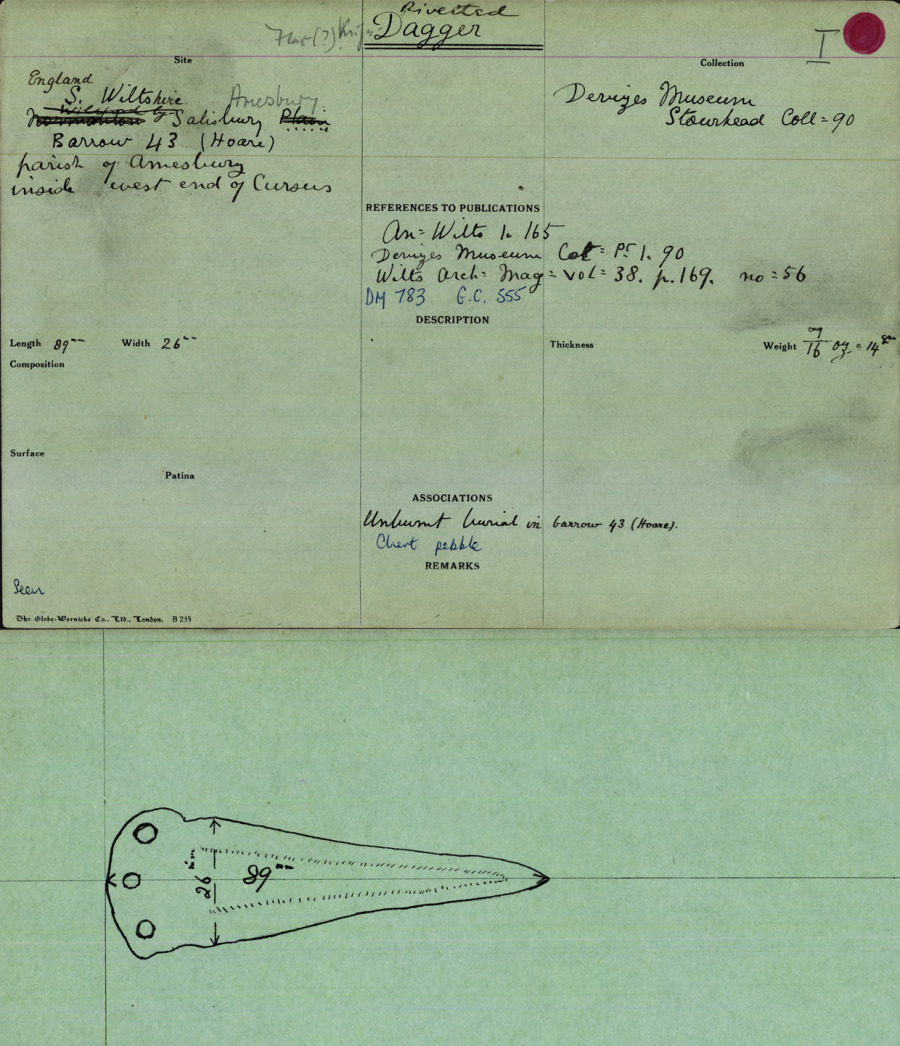 Rivetted
Flat (?) Knife
Dagger
I
Site
Collection
England
S. Wiltshire Amesbury
Salisbury Plain
Barrow 43 (Hoare)
parish of Amesbury
inside west end of Cursus
Devizes Museum
Stourhead Coll= 90
REFERENCES TO PUBLICATIONS
An= Wilts 1. 165
Devizes Museum Cat= Pt 1. 90
Wilts Arch= Mag= vol= 38. p.169. no=56
DM 783 G.C. 555
DESCRIPTION
Length 89mm Width 26mm
Thickness
Weight /16 oz = 14gm
Composition
Surface
Patina
ASSOCIATIONS
Unburnt burial in barrow 43 (Hoare).
Chert pebble
REMARKS
Seen
The Globe-Wernicke Co., Ltd., London. B 235
26mm
89mm